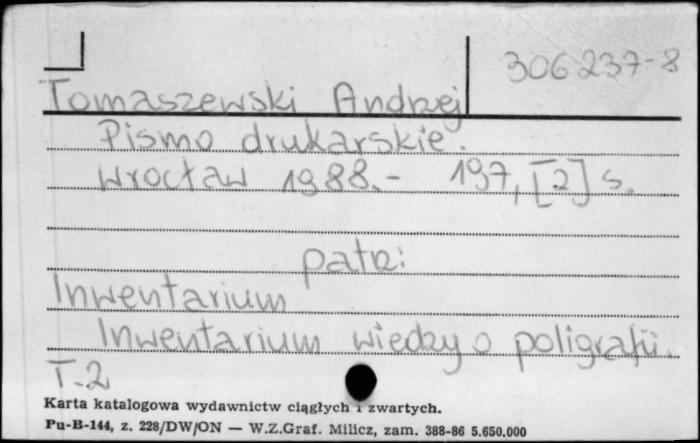 306237-8
Tomaszewski Andrzej
Pismo drukarskie.
Wrocław 1988.- 197, [2] s.
patrz:
Inwentarium
Inwentarium wiedzy o poligrafii.
T.2
Karta katalogowa wydawnictw ciągłych i zwartych.
Pu-B-144, z. 228/DW/ON — W.Z.Graf. Milicz, zam. 388-86 5.650.000